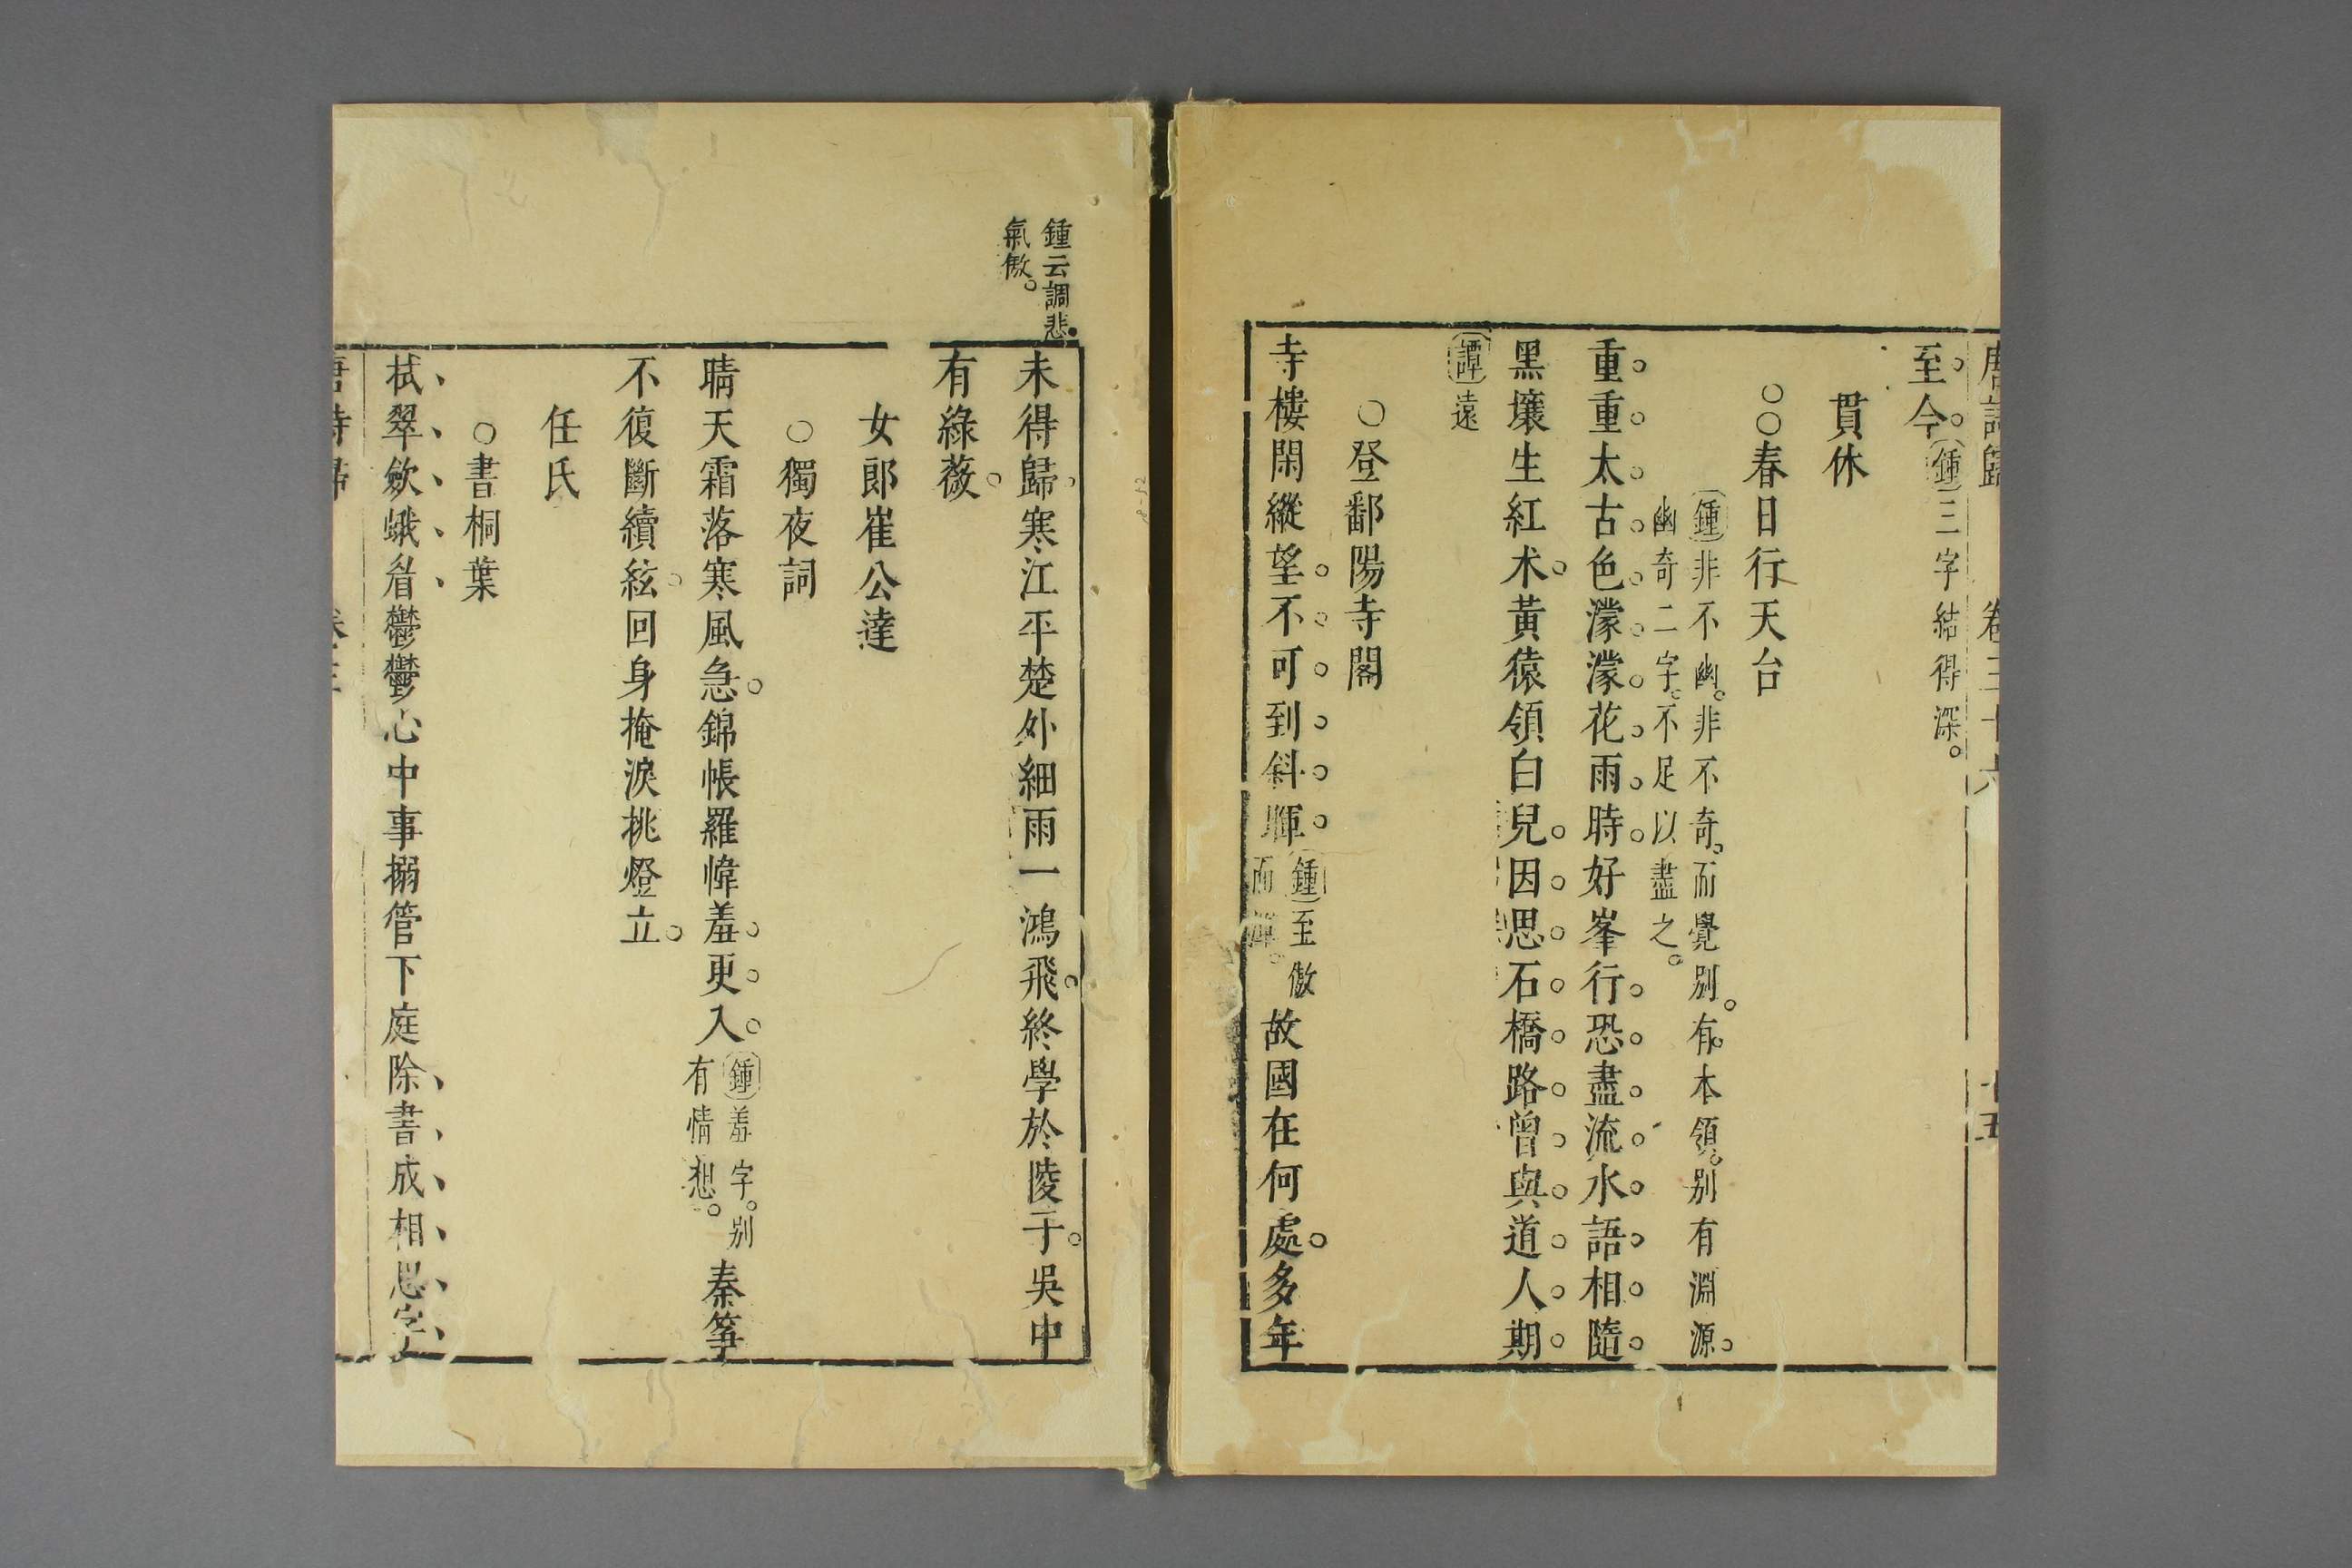 唐詩歸 卷三十六 十五
至今鍾三字結得深
貫休
○○春日行天台
鍾非不幽非不奇而覺別有本領別有淵源
幽奇二字不足以盡之
重重太古色濛濛花雨時好峯行恐盡流水語相隨
黑壤生紅朮黃猿領白兒因思石橋路曾與道人期
譚遠
○登鄱陽寺閣
寺樓閑縱望不可到斜暉鍾至傲而渾故國在何處多年
鍾云調悲
氣傲
未得歸寒江平楚外細雨一鴻飛終學於陵子吳中
有綠薇
女郎崔公達
○獨夜詞
晴天霜落寒風急錦帳羅幃羞更入鍾羞字別有情想秦筝
不復斷續絃回身掩淚挑燈立
任氏
○書桐葉
拭翠斂蛾眉鬱鬱心中事搦管下庭除書成相思字
唐詩歸